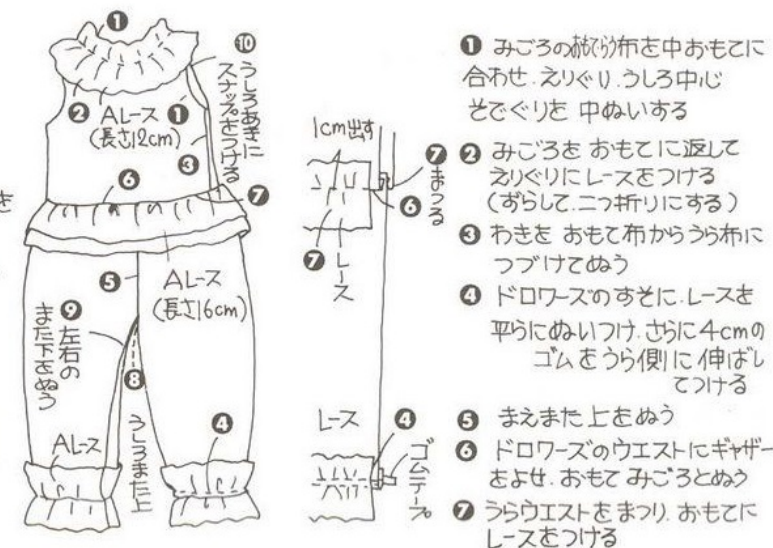 ❶
❿ うしろあきに
スナップをつける
❷ Aレース
(長さ12cm)
❶
❸
❻
❼
を
❺
Aレース
(長さ16cm)
❾ 左右の
また下をぬう
❽ うしろまた上
Aレース
❹
1cm出す
❼ まつる
❻
❼ レース
レース
❹
ゴムテープ
❶ みごろのおもてうら布を中おもてに
合わせ.えりぐり.うしろ中心
そでぐりを 中ぬいする
❷ みごろを おもてに返して
えりぐりにレースをつける
(ずらして.二つ折りにする)
❸ わきを おもて布からうら布に
つづけてぬう
❹ ドロワーズのすそに.レースを
平らにぬいつけ.さらに4cmの
ゴムをうら側に伸ばし
てつける
❺ まえまた上をぬう
❻ ドロワーズのウエストにギャザー
をよせ.おもてみごろとぬう
❼ うらウエストをまつり.おもてに
レースをつける